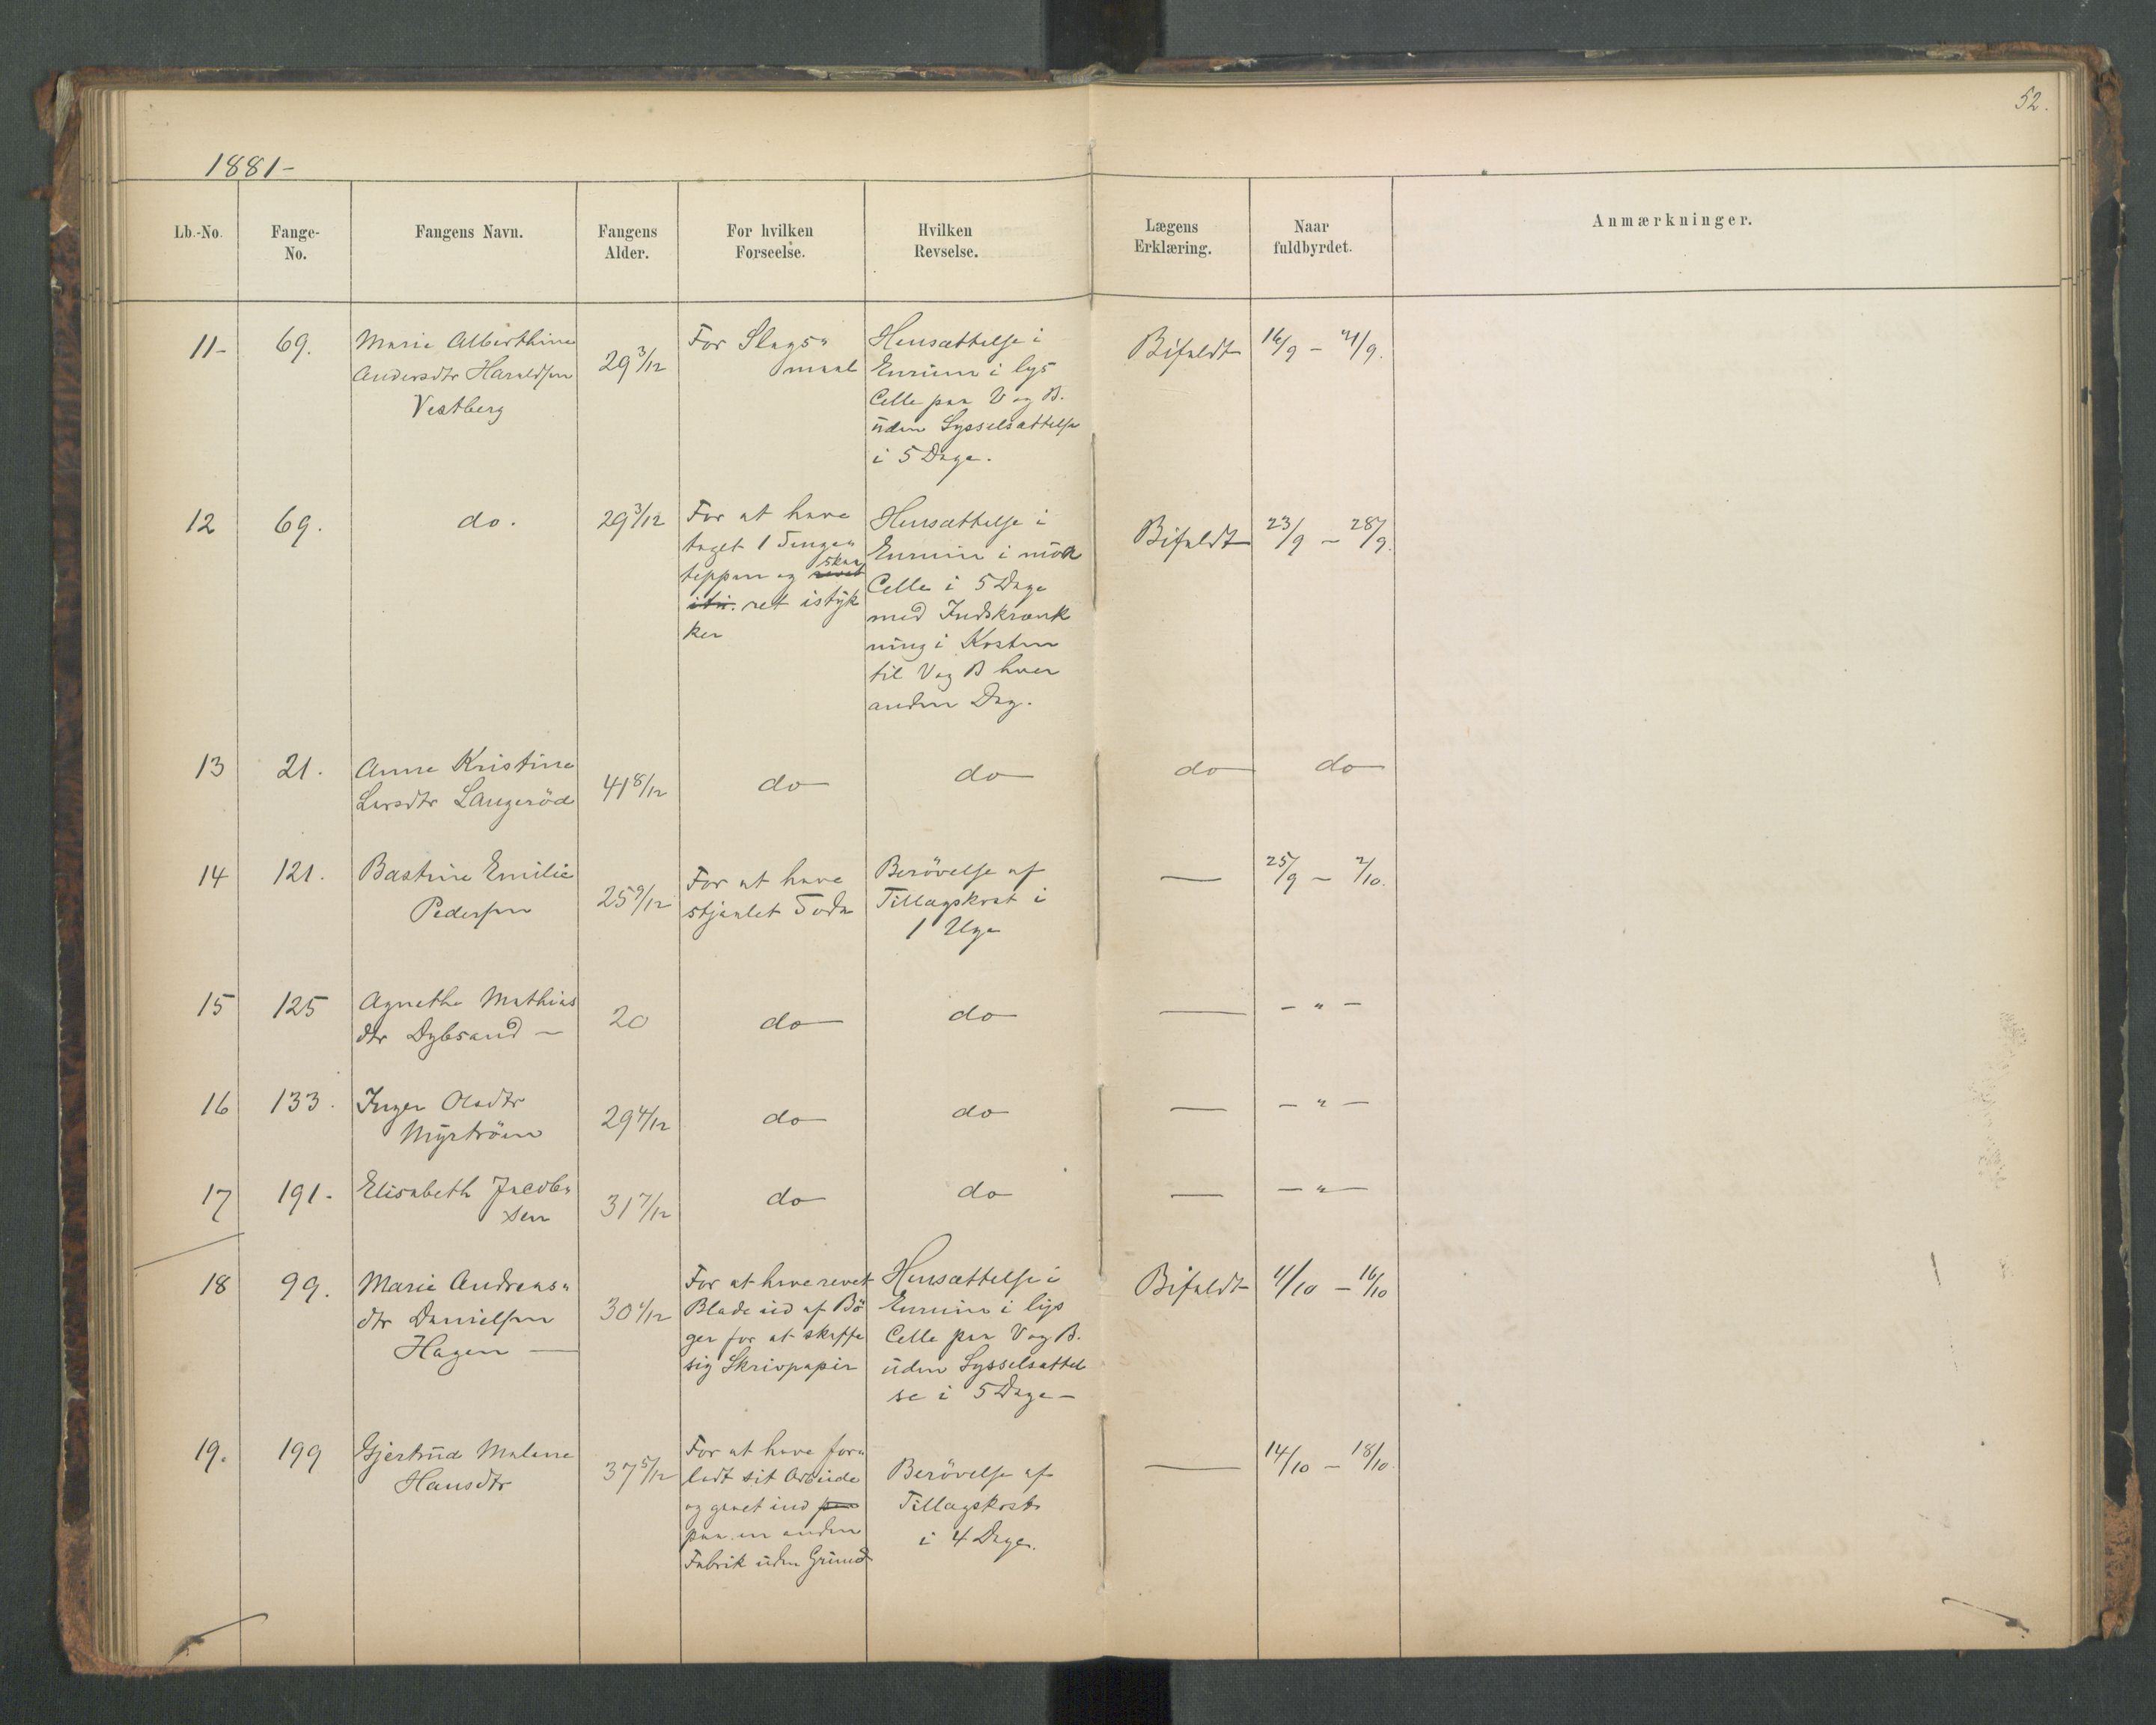 52.
1881-
Lb.-No. Fange-No. Fangens Navn. Fangens Alder. For hvilken Forseelse. Hvilken Revselse. Lægens Erklæring. Naar fuldbyrdet. Anmærkninger.
11- 69. Marie Alberthine 29 3/12 For Slags- Hensættelse i Bifaldt 16/9 - 21/9.
Andersdtr Haraldsen maal Enrum i lys
Vestberg Celle paa V og B.
uden Sysselsættelse
i 5 Dage.
12 69. do. 29 3/12 For at have Hensættelse i Bifaldt 23/9 - 28/9.
taget 1 Senge- Enrum i mörk
teppe og revet skaa Celle i 5 Dage
itü. ret istyk med Indskrænk
ker ning i Kosten
til V og B hver
anden Dag.
13 21. Anne Kristine 41 8/12 do do do do
Larsdtr Langeröd
14 121. Bastine Emilie 25 9/12 For at have Berövelse af — 25/9 - 2/10.
Pedersen stjaalet Tillægskost i
1 Uge
15 125 Agnethe Mathias 20 do do — - " -
dtr Dybsand —
16 133. Inger Olsdtr 29 4/12 do do — - " -
Myrström
17 191- Elisabeth Jacob- 31 7/12 do do — - " -
sen
18 99. Marie Andreas- 30 4/12 For at have revet Hensættelse i Bifaldt 11/10 - 16/10
dtr Danielsen Blade ud af Bö Enrum i lys
Hagen — ger for at skaffe Celle paa V og B.
sig Skrivpapir uden Sysselsættel
se i 5 Dage -
19. 199 Gjertrud Malene 37 5/12 For at have for- Berövelse af — 14/10 - 18/10.
Hansdtr ladt sit Arbeide Tillægskost
og gaaet ind paa i 4 Dage.
paa en anden
Fabrik uden Grund